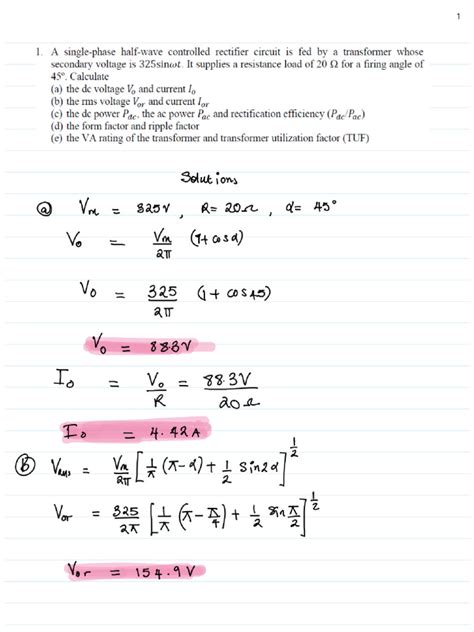 1
1. A single-phase half-wave controlled rectifier circuit is fed by a transformer whose
secondary voltage is 325sinωt. It supplies a resistance load of 20 Ω for a firing angle of
45°. Calculate
(a) the dc voltage Vo and current Io
(b) the rms voltage Vor and current Ior
(c) the dc power Pdc, the ac power Pac and rectification efficiency (Pdc/Pac)
(d) the form factor and ripple factor
(e) the VA rating of the transformer and transformer utilization factor (TUF)
Solutions
(a) Vm = 325V, R= 20Ω, α= 45°
Vo = Vm/2π (1+cosα)
Vo = 325/2π (1+cos45)
Vo = 88.3V
Io = Vo/R = 88.3V/20Ω
Io = 4.42A
(B) Vrms = Vm/2π [1/π (π-α)+ 1/2 sin2α]^1/2
Vor = 325/2π [1/π (π-π/4)+ 1/2 sin π/2]^1/2
Vor = 154.9V